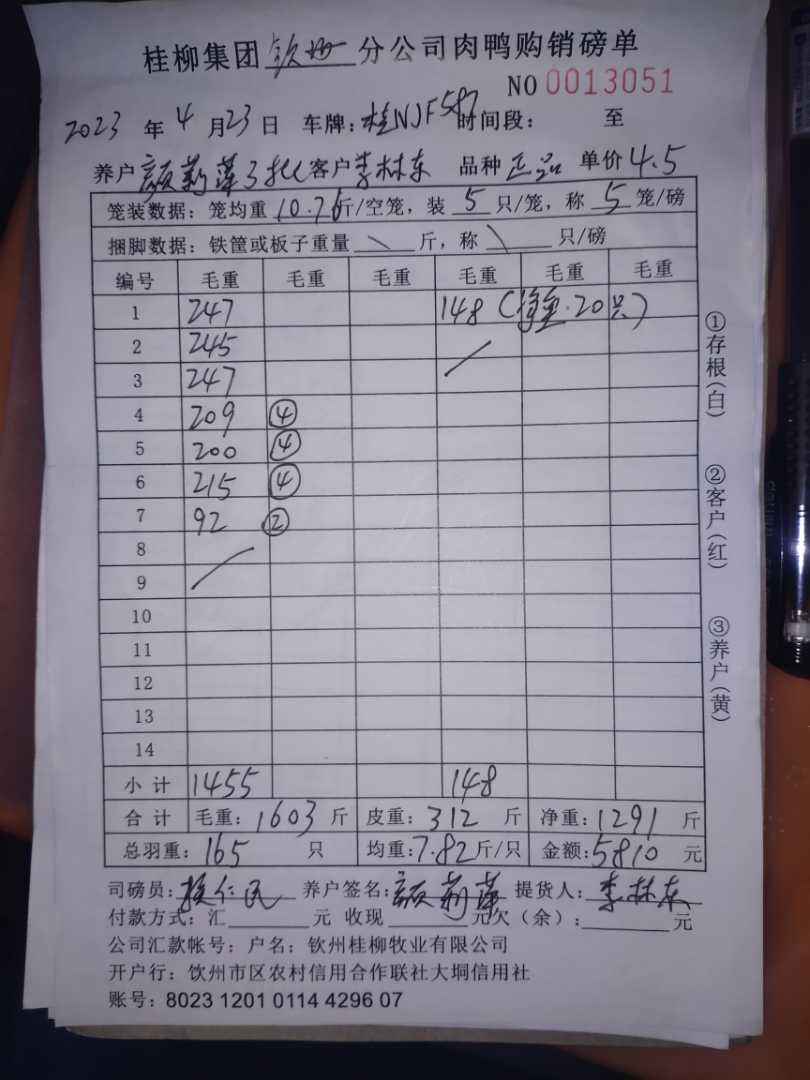 桂柳集团 钦州 分公司肉鸭购销磅单
NO 0013051
2023 年 4 月 23 日 车牌：桂NJF587 时间段： 至
养户 颜莉萍3批 客户 李林东 品种 正品 单价 4.5
笼装数据：笼均重 10.76 斤/空笼，装 5 只/笼，称 5 笼/磅
捆脚数据：铁筐或板子重量 \ 斤，称 \ 只/磅
编号 毛重 毛重 毛重 毛重 毛重 毛重
1 247 148（净重.20只）
2 245
3 247
4 209 ④
5 200 ④
6 215 ④
7 92 ②
8
9
10
11
12
13
14
小计 1455 148
合计 毛重：1603 斤 皮重：312 斤 净重：1291 斤
总羽重：165 只 均重：7.82 斤/只 金额：5810 元
司磅员： 仁民 养户签名：颜莉萍 提货人：李林东
付款方式：汇 元 收现 元欠（余）： 元
公司汇款帐号：户名：钦州桂柳牧业有限公司
开户行：饮州市区农村信用合作联社大垌信用社
账号：8023 1201 0114 4296 07
①存根（白）
②客户（红）
③养户（黄）